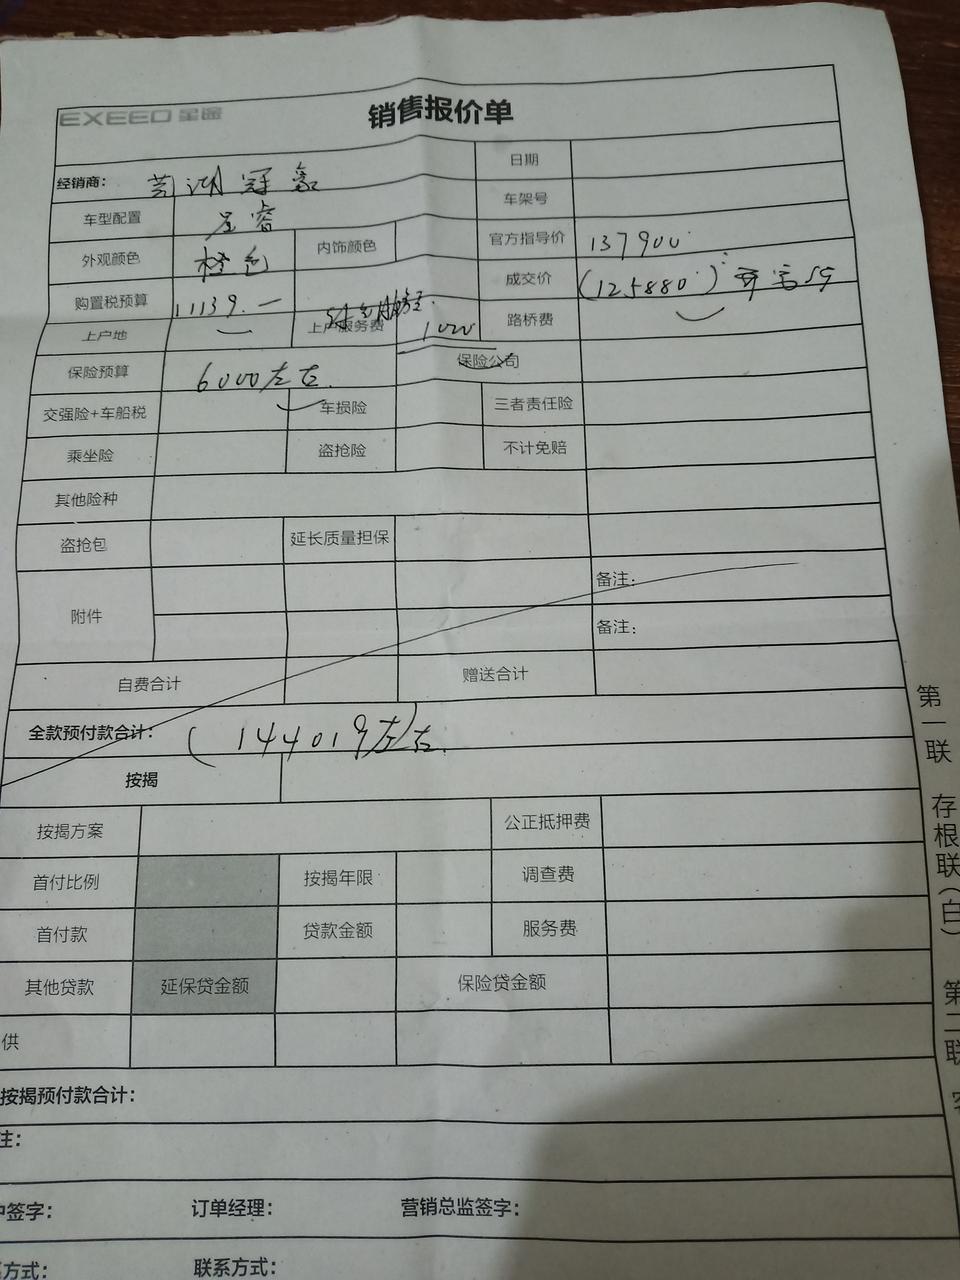 EXEED 星途
销售报价单
经销商： 芜湖冠豪 日期
车型配置 车架号
外观颜色 橙色 内饰颜色 官方指导价 137900
购置税预算 11139.一 成交价 (125880)
上户地 上户服务费 1000 路桥费
保险预算 6000左右. 保险公司
交强险+车船税 车损险 三者责任险
乘坐险 盗抢险 不计免赔
其他险种
盗抢包 延长质量担保
附件 备注：
备注：
自费合计 赠送合计
全款预付款合计： (144019左右.
按揭
按揭方案 公正抵押费
首付比例 按揭年限 调查费
首付款 贷款金额 服务费
其他贷款 延保贷金额 保险贷金额
供
按揭预付款合计：
注：
户签字： 订单经理： 营销总监签字：
方式： 联系方式：
第一联 存根联(白) 第二联